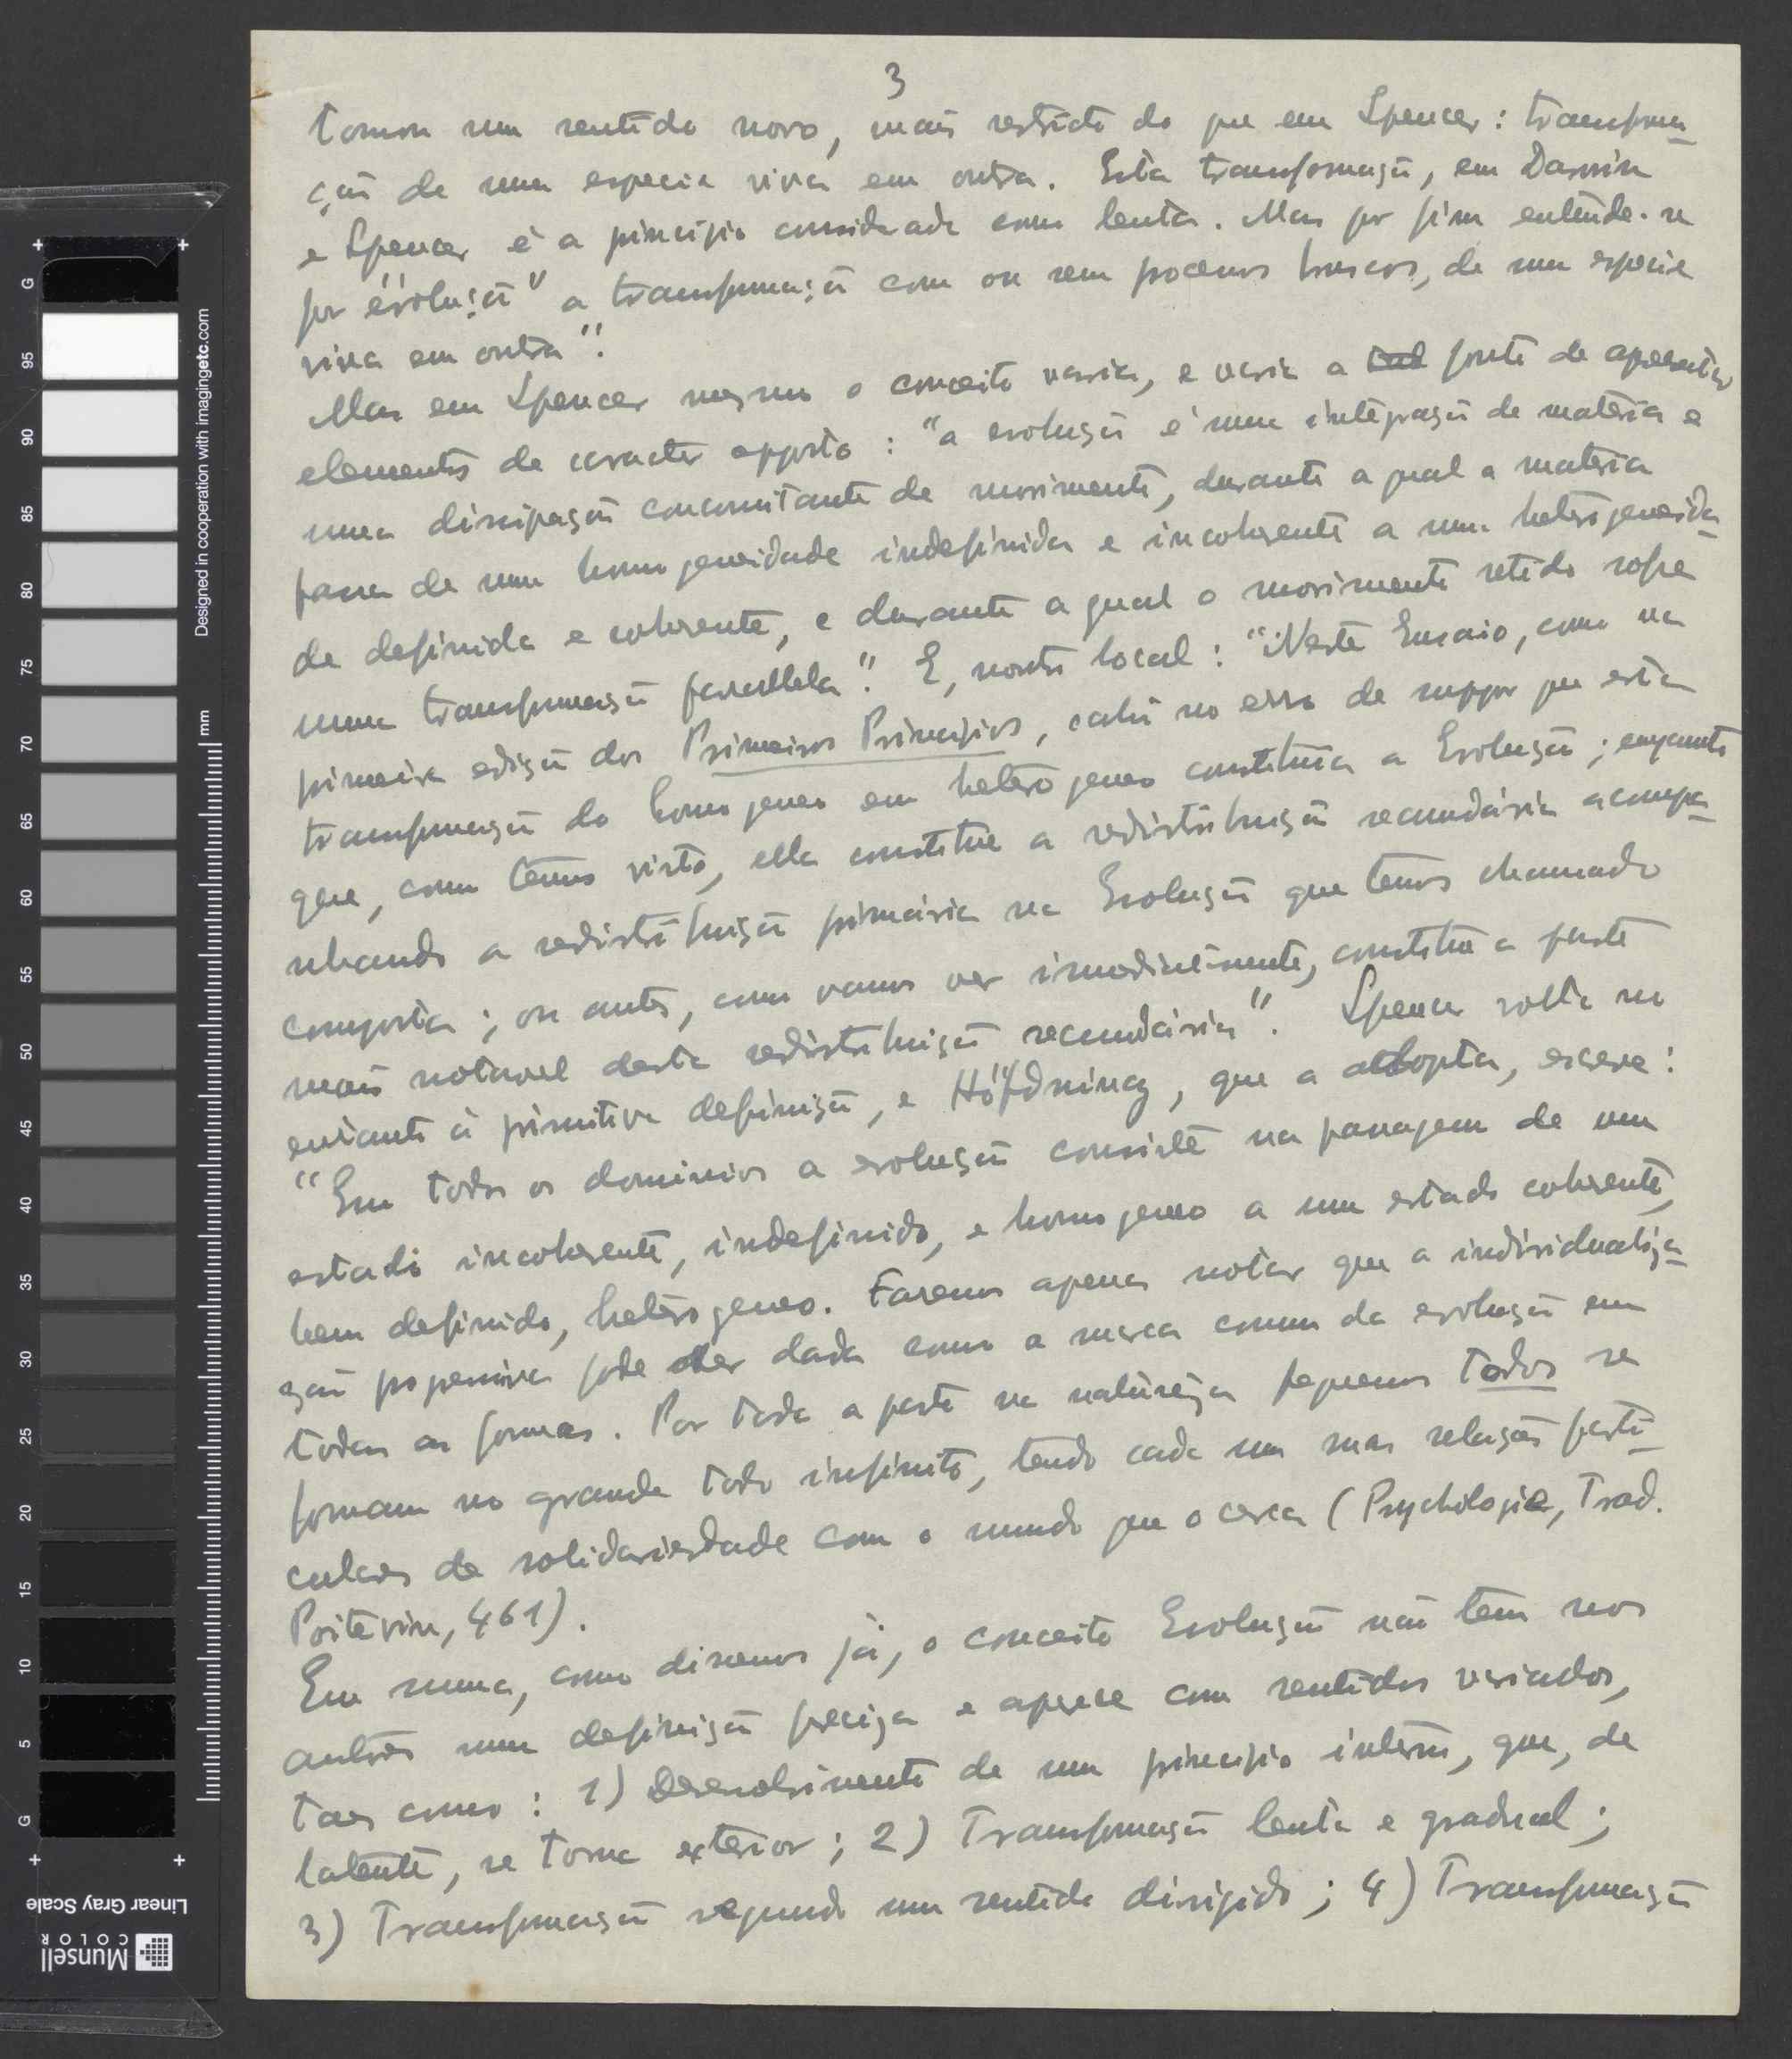 3
tomou um sentido novo, mais restricto do que em Spencer: transforma-
ção de uma especie viva em outra. Esta transformação, em Darwin
e Spencer é a principio considerada como lenta. Mas por fim entende-se
por "evolução" a transformação com ou sem processos bruscos, de uma especie
viva em outra".
Mas em Spencer mesmo o conceito varia, e varia a tal ponto de apresentar
elementos de caracter opposto: "a evolução é uma integração de materia e
uma dissipação concomitante de movimento, durante a qual a materia
passa de uma homogeneidade indefinida e incoherente a uma heterogeneida-
de definida e coherente, e durante a qual o movimento retido sofre
uma transformação parallela". E, noutro local: "Neste Ensaio, como na
primeira edição dos Primeiros Principios, cahi no erro de suppor que esta
transformação do homogeneo em heterogeneo constituia a Evolução; enquanto
que, como temos visto, ella constitue a redistribuição secundária acompa-
nhando a redistribuição primária na Evolução que temos chamado
composta; ou antes, como vamos ver imediatamente, constitue a parte
mais notavel desta redistribuição secundária". Spencer volta no
entanto á primitiva definição, e Höffdning, que a adopta, escreve:
"Em todos os dominios a evolução consiste na passagem de um
estado incoherente, indefinido, e homogeneo a um estado coherente,
bem definido, heterogeneo. Faremos apenas notar que a individualiza-
ção progressiva pode ser dada como a marca comum da evolução em
todas as formas. Por toda a parte na natureza pequenos todos se
formam no grande todo infinito, tendo cada um suas relações parti-
culares de solidariedade com o mundo que o cerca (Psychologie, Trad.
Poitevin, 461).
Em suma, como dissemos já, o conceito Evolução não tem nos
autores uma definição preciza e aparece com sentidos variados,
taes como: 1) Desenvolvimento de um principio interno, que, de
latente, se torna exterior; 2) Transformação lenta e gradual;
3) Transformação segundo um sentido dirigido; 4) Transformação
Designed in cooperation with imagingetc.com
mm
G
95
90
85
80
75
70
65
60
55
50
45
40
35
30
25
20
15
10
5
G
Linear Gray Scale
Munsell
COLOR